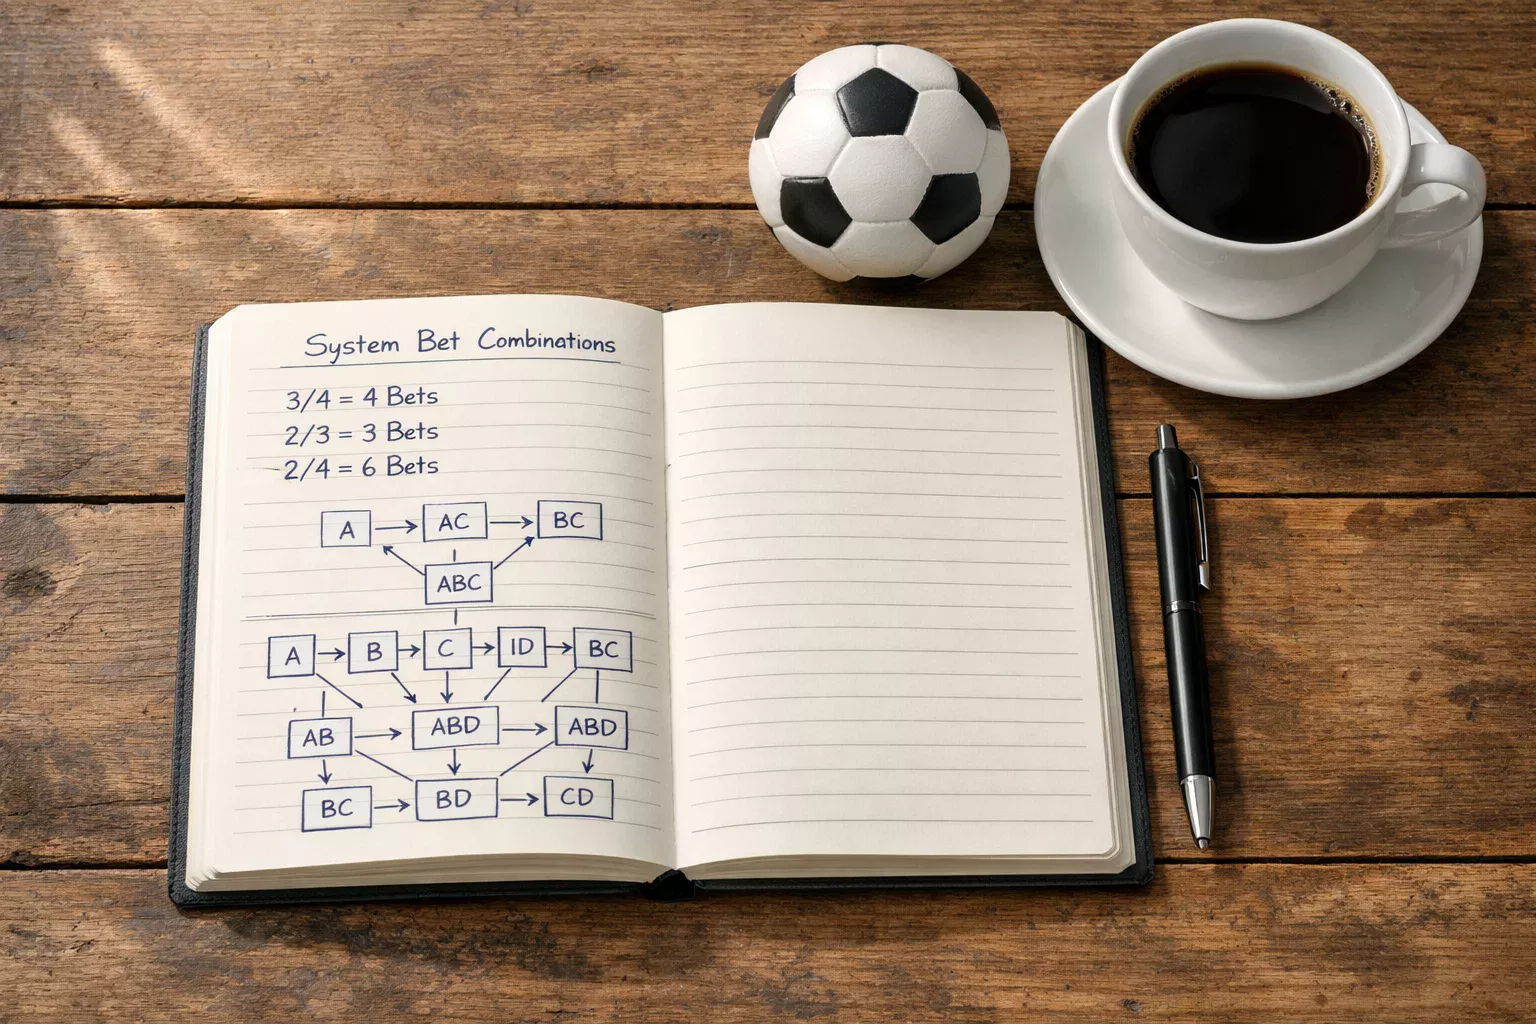 System Bet Combinations
3/4 = 4 Bets
2/3 = 3 Bets
2/4 = 6 Bets
A AC BC
ABC
A B C ID BC
AB ABD ABD
BC BD CD